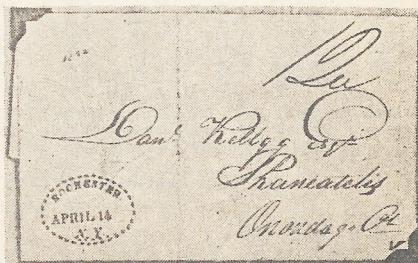 Danl. Kellogg esqr.
Skaneatelis
Onondaga Ct.
ROCHESTER
APRIL 14
N.Y.